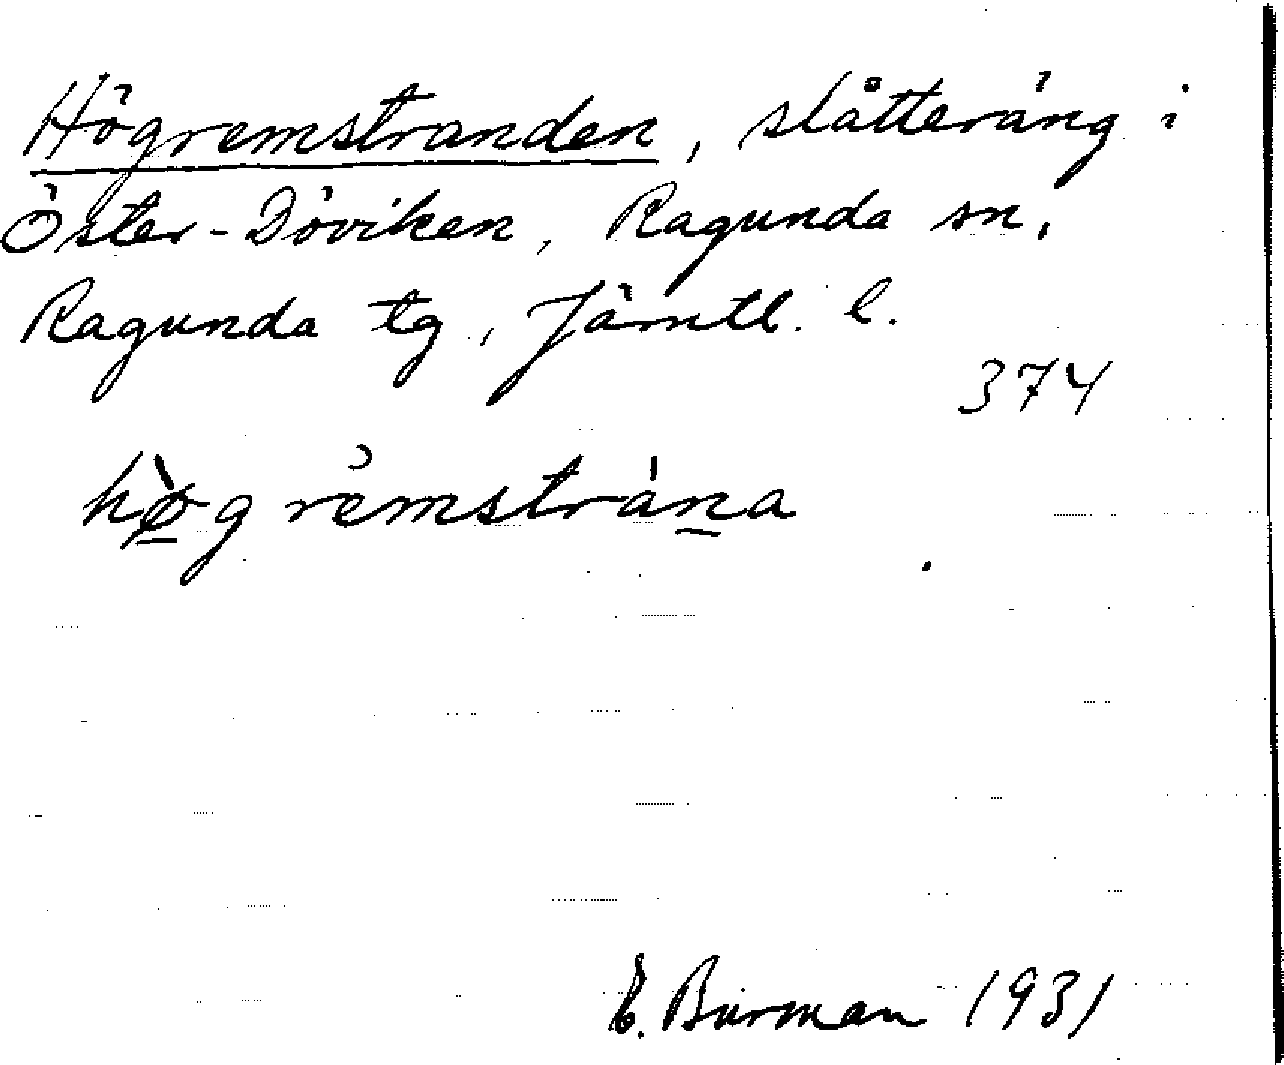 Högremstranden, slåtteräng i
Öster-Döviken, Ragunda sn,
Ragunda tg, Jämtl. l.
374
hø̲̀g rĕmstrán̲a
E. Burman 1931